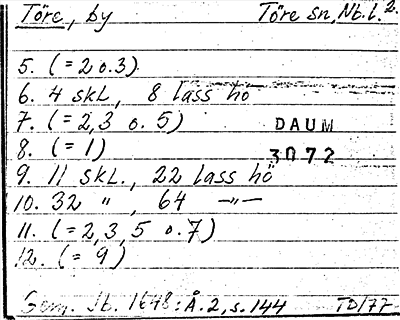 Töre, by Töre sn, Nb.l. 2.
5. (= 2 o. 3)
6. 4 skl., 8 lass hö
7. (= 2, 3 o. 5) DAUM
8. (= 1) 3072
9. 11 skl., 22 lass hö
10. 32 " , 64 -"-
11. (= 2, 3, 5 o. 7)
12. (= 9)
Jb. 1648: Å. 2, s. 144 TD/77